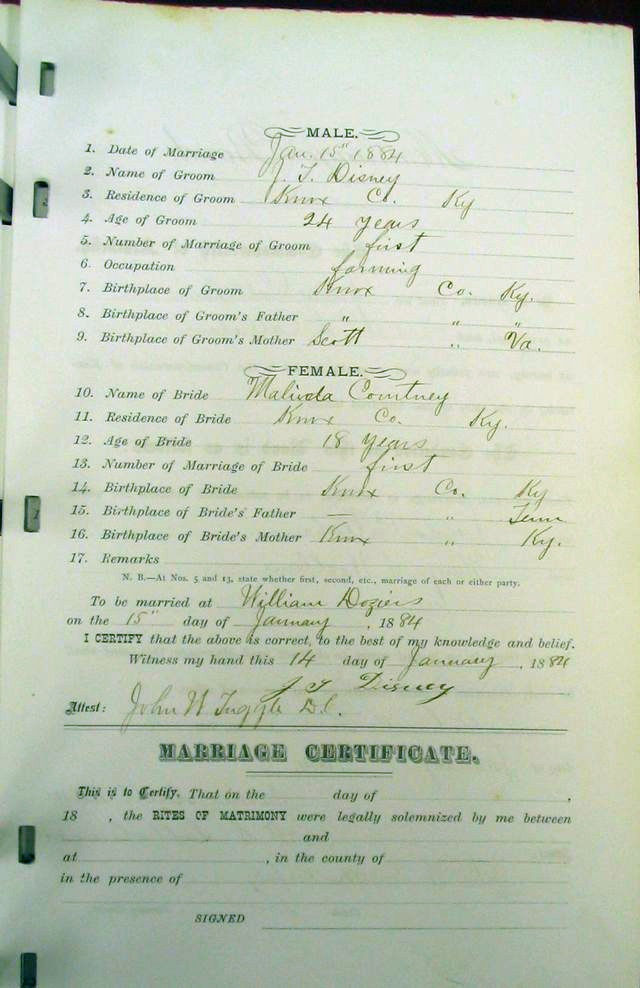 MALE.
1. Date of Marriage Jan. 15" 1884
2. Name of Groom J. T. Disney
3. Residence of Groom Knox Co. Ky
4. Age of Groom 24 years
5. Number of Marriage of Groom first
6. Occupation farming
7. Birthplace of Groom Knox Co. Ky.
8. Birthplace of Groom's Father " " "
9. Birthplace of Groom's Mother Scott " Va.
FEMALE.
10. Name of Bride Malinda Courtney
11. Residence of Bride Knox Co. Ky.
12. Age of Bride 18 years
13. Number of Marriage of Bride first
14. Birthplace of Bride Knox Co. Ky
15. Birthplace of Bride's Father — " Tenn
16. Birthplace of Bride's Mother Knox " Ky.
17. Remarks
N. B.—At Nos. 5 and 13, state whether first, second, etc., marriage of each or either party.
To be married at William Doziers
on the 15" day of January, 1884
I CERTIFY that the above is correct, to the best of my knowledge and belief.
Witness my hand this 14 day of January, 1884
J T Disney
Attest: John W Tuggle D.C.
MARRIAGE CERTIFICATE.
This is to Certify. That on the day of ,
18 , the RITES OF MATRIMONY were legally solemnized by me between
and
at , in the county of
in the presence of
SIGNED